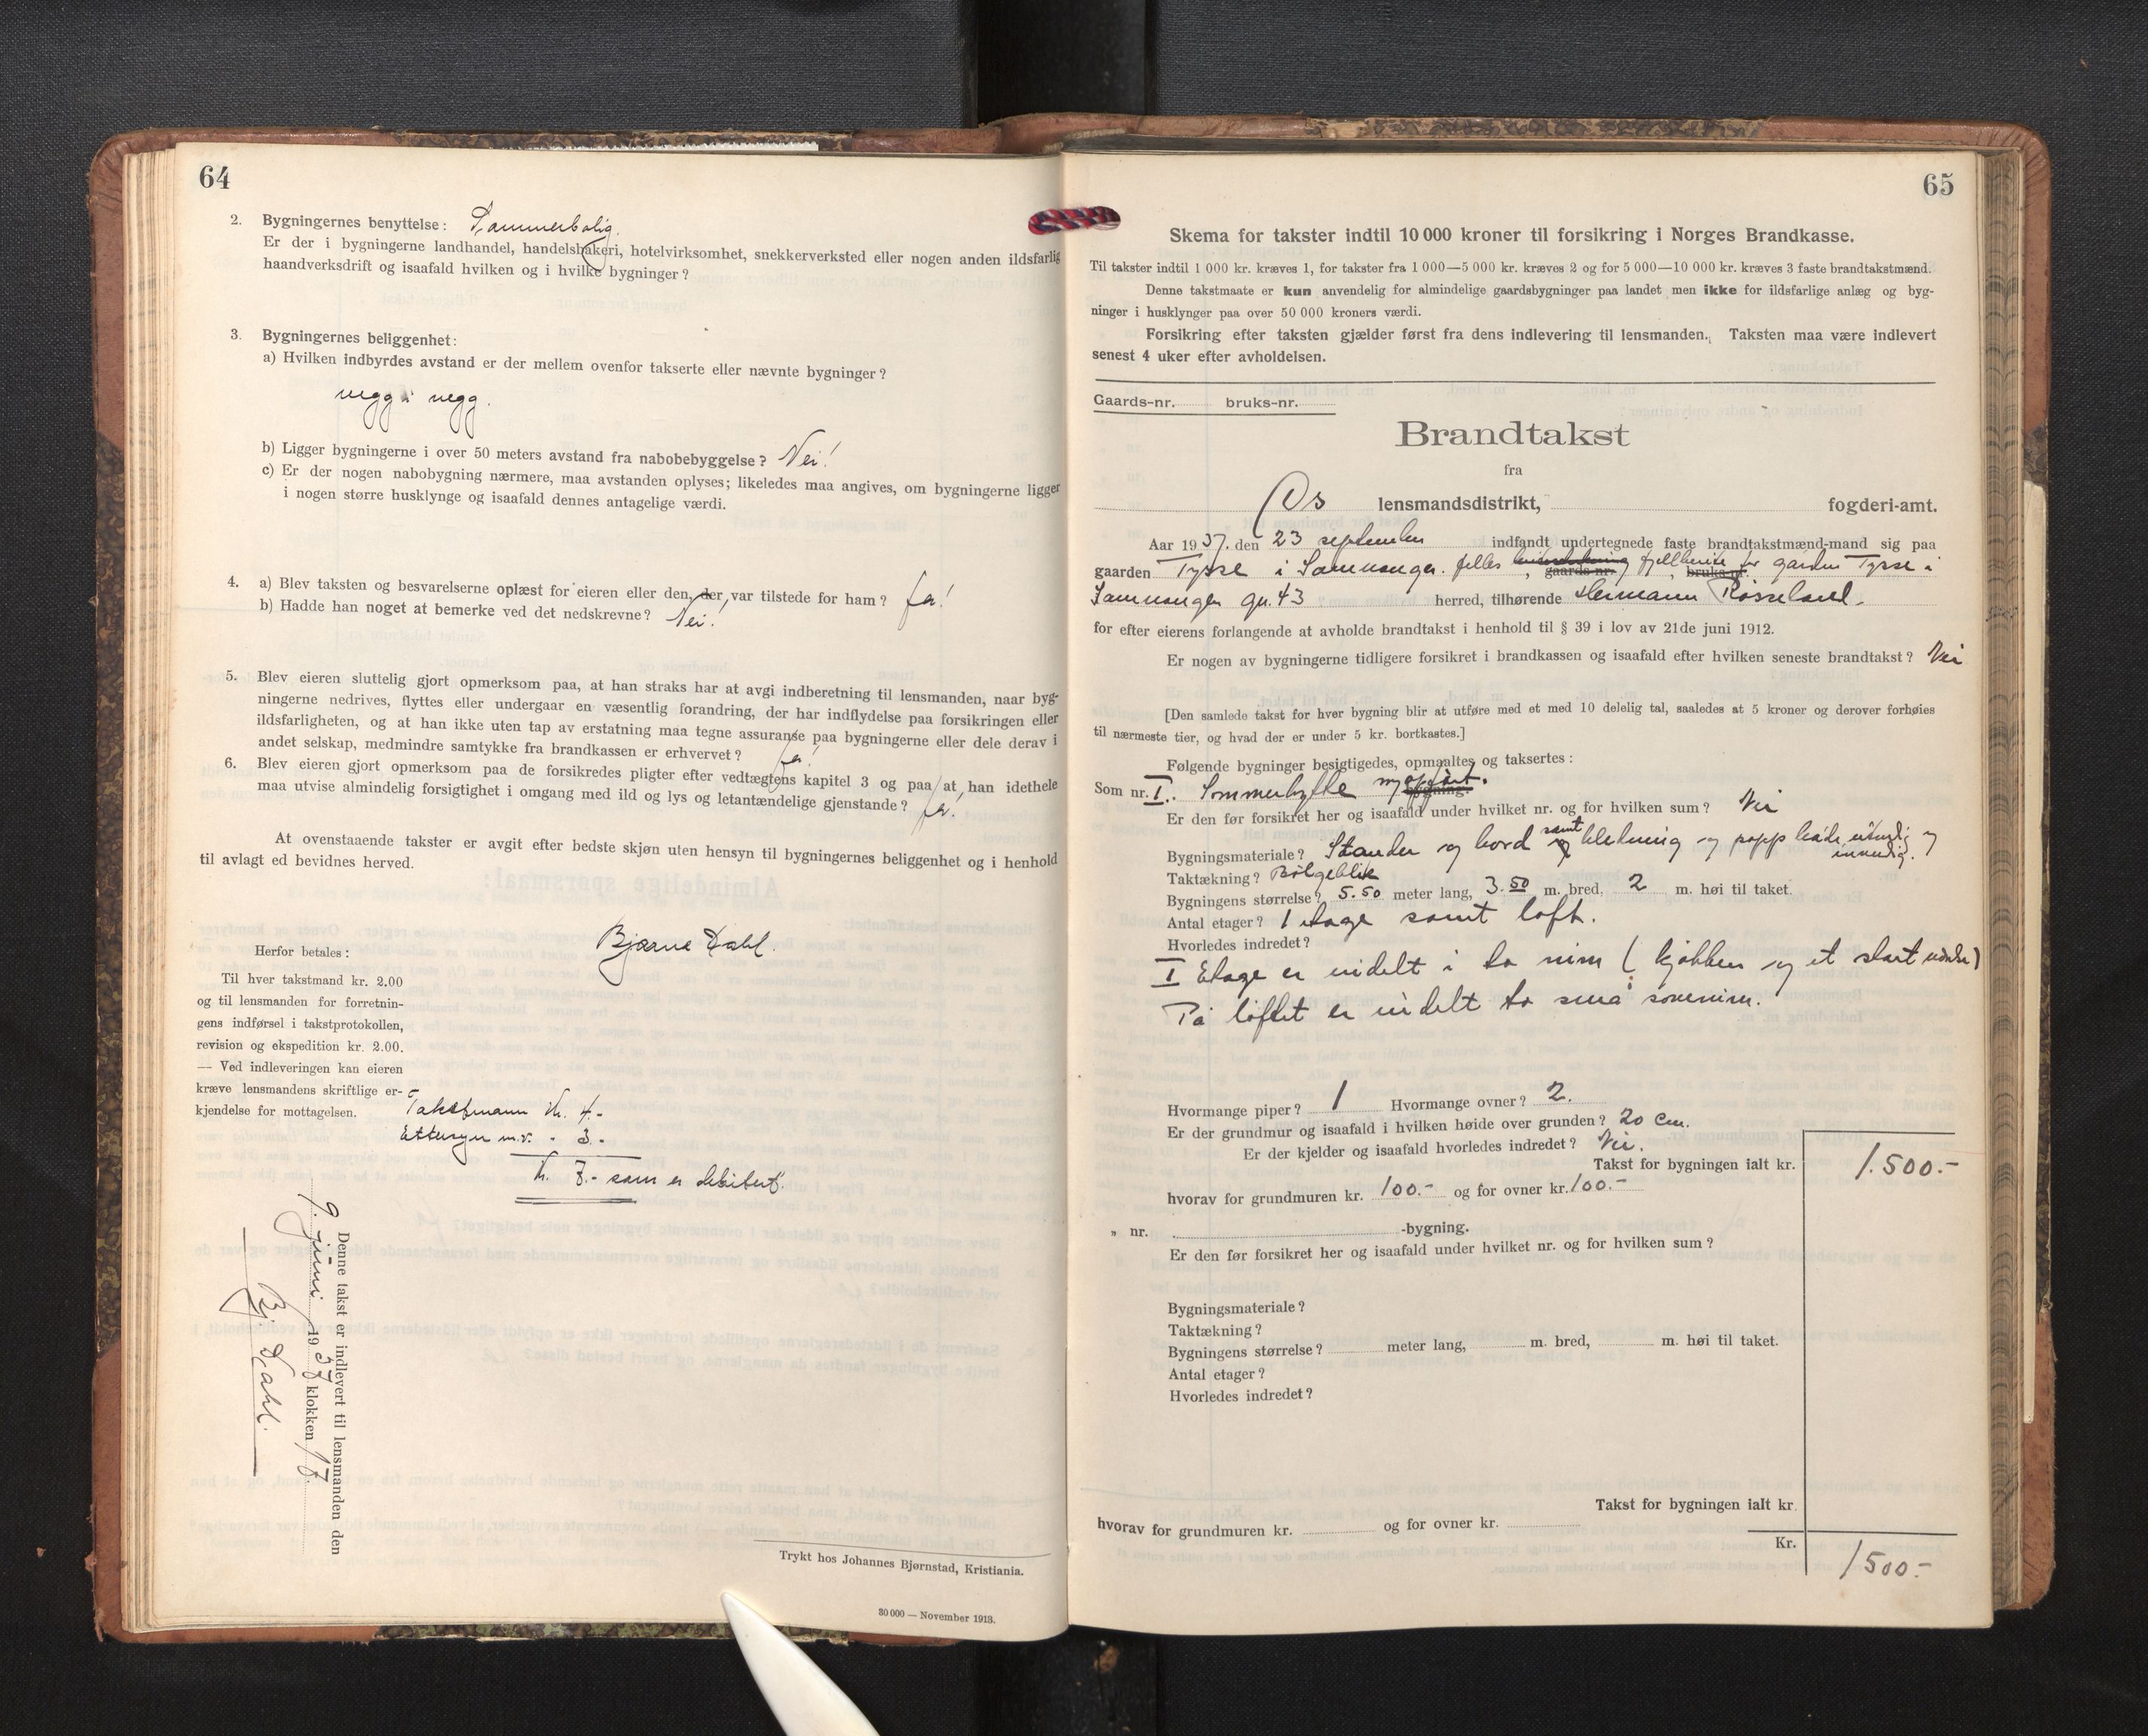 64
2. Bygningernes benyttelse: Sommerbolig.
Er der i bygningerne landhandel, handelsbakeri, hotelvirksomhet, snekkerverksted eller nogen anden ildsfarlig
haandverksdrift og isaafald hvilken og i hvilke bygninger?
3. Bygningernes beliggenhet:
a) Hvilken indbyrdes avstand er der mellem ovenfor takserte eller nævnte bygninger?
vegg i vegg.
b) Ligger bygningerne i over 50 meters avstand fra nabobebyggelse? Nei!
c) Er der nogen nabobygning nærmere, maa avstanden oplyses; likeledes maa angives, om bygningerne ligger
i nogen større husklynge og isaafald dennes antagelige værdi.
4. a) Blev taksten og besvarelserne oplæst for eieren eller den, der var tilstede for ham? Ja!
b) Hadde han noget at bemerke ved det nedskrevne? Nei!
5. Blev eieren sluttelig gjort opmerksom paa, at han straks har at avgi indberetning til lensmanden, naar byg-
ningerne nedrives, flyttes eller undergaar en væsentlig forandring, der har indflydelse paa forsikringen eller
ildsfarligheten, og at han ikke uten tap av erstatning maa tegne assuranse paa bygningerne eller dele derav i
andet selskap, medmindre samtykke fra brandkassen er erhvervet? Ja!
6. Blev eieren gjort opmerksom paa de forsikredes pligter efter vedtægtens kapitel 3 og paa at han idethele
maa utvise almindelig forsigtighet i omgang med ild og lys og letantændelige gjenstande? Ja!
At ovenstaaende takster er avgit efter bedste skjøn uten hensyn til bygningernes beliggenhet og i henhold
til avlagt ed bevidnes herved.
Bjarne Dahl.
Herfor betales:
Til hver takstmand kr. 2.00
og til lensmanden for forretnin-
gens indførsel i takstprotokollen,
revision og ekspedition kr. 2.00.
— Ved indleveringen kan eieren
kræve lensmandens skriftlige er-
kjendelse for mottagelsen.
Takstmann kr. 4.-
Ettersyn m.v. - 3.-
Kr. 7.- som er debitert.
Denne takst er indlevert til lensmanden den
9. juni 1937 klokken 17.
Bj. Dahl.
Trykt hos Johannes Bjørnstad, Kristiania.
30 000 — November 1913.
65
Skema for takster indtil 10 000 kroner til forsikring i Norges Brandkasse.
Til takster indtil 1 000 kr. kræves 1, for takster fra 1 000—5 000 kr. kræves 2 og for 5 000—10 000 kr. kræves 3 faste brandtakstmænd.
Denne takstmaate er kun anvendelig for almindelige gaardsbygninger paa landet men ikke for ildsfarlige anlæg og byg-
ninger i husklynger paa over 50 000 kroners værdi.
Forsikring efter taksten gjælder først fra dens indlevering til lensmanden. Taksten maa være indlevert
senest 4 uker efter avholdelsen.
Gaards-nr. bruks-nr.
Brandtakst
fra
Os lensmandsdistrikt, fogderi-amt.
Aar 1937. den 23 september indfandt undertegnede faste brandtakstmænd-mand sig paa
gaarden Tysse i Samnanger. felles gaards-nr. fjellbeite for garden bruks-nr. Tysse i
Samnanger gn. 43 herred, tilhørende Hermann Røsseland.
for efter eierens forlangende at avholde brandtakst i henhold til § 39 i lov av 21de juni 1912.
Er nogen av bygningerne tidligere forsikret i brandkassen og isaafald efter hvilken seneste brandtakst? Nei
[Den samlede takst for hver bygning blir at utføre med et med 10 delelig tal, saaledes at 5 kroner og derover forhøies
til nærmeste tier, og hvad der er under 5 kr. bortkastes.]
Følgende bygninger besigtigedes, opmaaltes og taksertes:
Som nr. I. Sommerhytte nyopført. bygning.
Er den før forsikret her og isaafald under hvilket nr. og for hvilken sum? Nei
Bygningsmateriale? Stander og bord samt kledning og papp både utvendig og innvendig.
Taktækning? Bølgeblik
Bygningens størrelse? 5.50 meter lang, 3.50 m. bred, 2 m. høi til taket.
Antal etager? 1 etage samt loft.
Hvorledes indredet?
I Etage er inndelt i to rum (kjøkken og et stort
På loftet er inndelt to små soverum.
Hvormange piper? 1 Hvormange ovner? 2.
Er der grundmur og isaafald i hvilken høide over grunden? 20 cm.
Er der kjelder og isaafald hvorledes indredet? Nei.
Takst for bygningen ialt kr. 1.500.-
hvorav for grundmuren kr. 100.- og for ovner kr. 100.-
„ nr. -bygning.
Er den før forsikret her og isaafald under hvilket nr. og for hvilken sum?
Bygningsmateriale?
Taktækning?
Bygningens størrelse? meter lang, m. bred, m. høi til taket.
Antal etager?
Hvorledes indredet?
Takst for bygningen ialt kr.
hvorav for grundmuren kr. og for ovner kr.
Kr. 1500.-